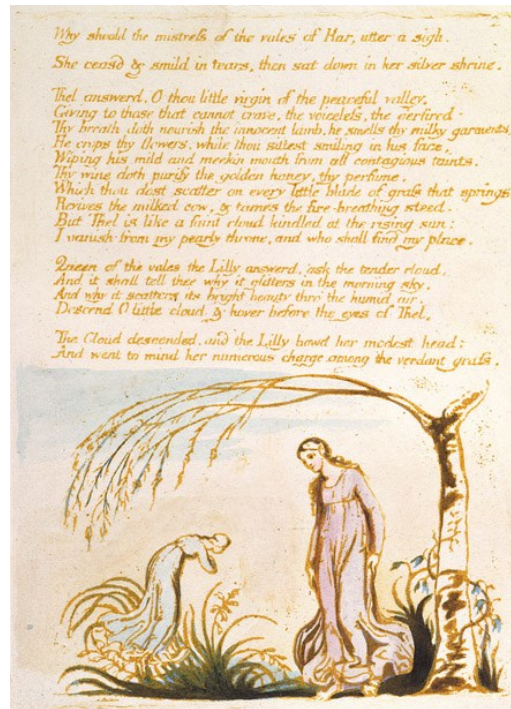 Why should the mistress of the vales of Har, utter a sigh.
She ceasd & smild in tears, then sat down in her silver shrine.
Thel answerd, O thou little virgin of the peaceful valley,
Giving to those that cannot crave, the voiceless, the o'ertired
Thy breath doth nourish the innocent lamb, he smells thy milky garments
He crops thy flowers, while thou sittest smiling in his face,
Wiping his mild and meekin mouth from all contagious taints.
Thy wine doth purify the golden honey, thy perfume,
Which thou dost scatter on every little blade of grass that springs
Revives the milked cow, & tames the fire-breathing steed.
But Thel is like a faint cloud kindled at the rising sun:
I vanish from my pearly throne, and who shall find my place.
Queen of the vales the Lilly answerd, ask the tender cloud,
And it shall tell thee why it glitters in the morning sky,
And why it scatters its bright beauty thro the humid air.
Descend O little cloud & hover before the eyes of Thel.
The Cloud descended, and the Lilly bowd her modest head:
And went to mind her numerous charge among the verdant grass.